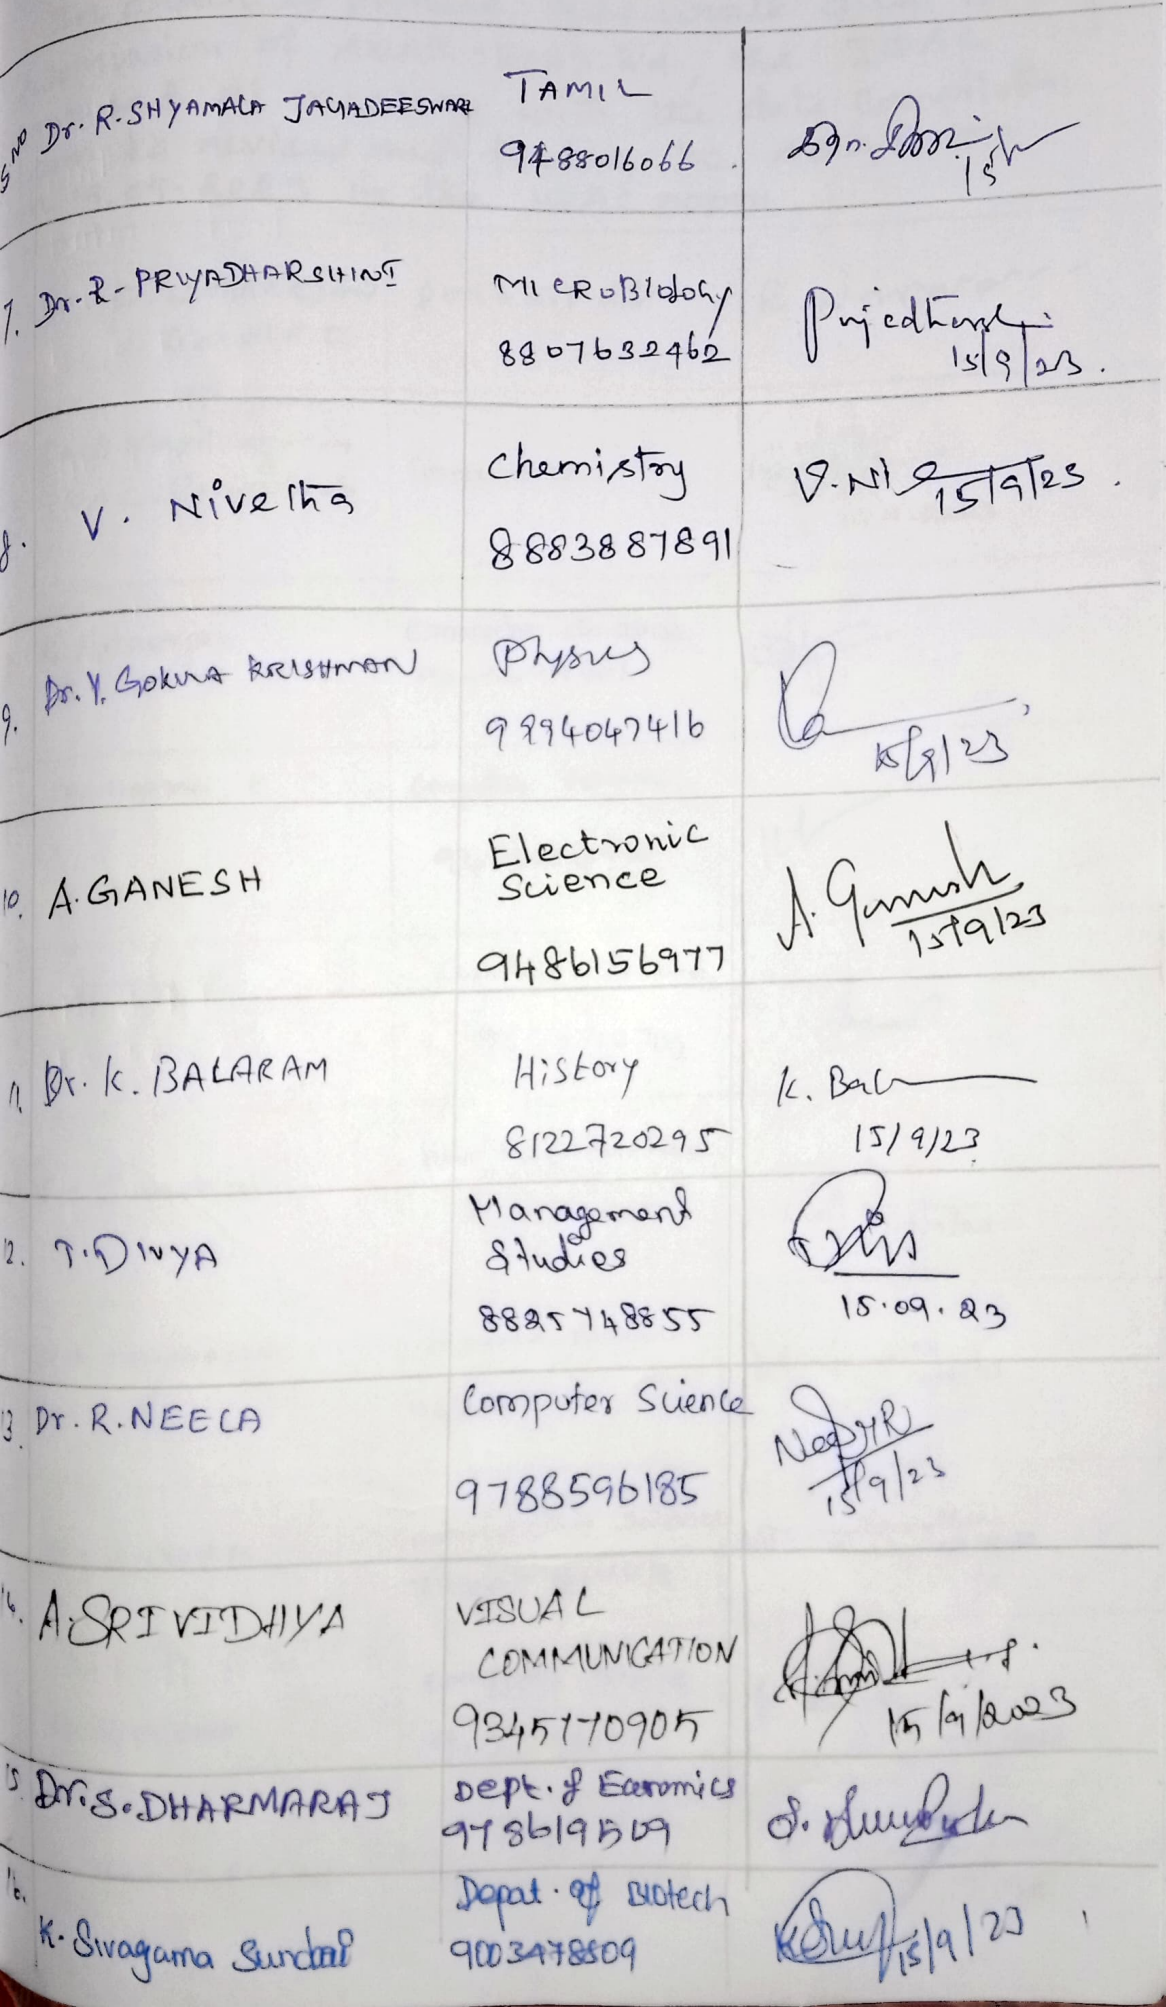 S.NO Dr. R. SHYAMALA JAGADEESWARI TAMIL
9488016066
15
7. Dr. R. PRIYADHARSHINI MICROBIOLOGY
8807632462 15/9/23.
8. V. Nivetha Chemistry V. Ni 15/9/23.
8883887891
9. Dr. Y. GOKULA KRISHNAN Physics
9894047416 15/9/23
10. A. GANESH Electronic Science A. Ganesh
9486156977 15/9/23
11. Dr. K. BALARAM History K. Bal
8122720295 15/9/23
12. T. DIVYA Management Studies
8825748855 15.09.23
13. Dr. R. NEELA Computer Science
9788596185 15/9/23
14. A. SRIVIDHYA VISUAL COMMUNICATION
9345170905 15/9/2023
15. Dr. S. DHARMARAJ Dept. of Economics
978619509
16. K. Sivagama Sundari Depat. of Biotech
9003478509 15/9/23